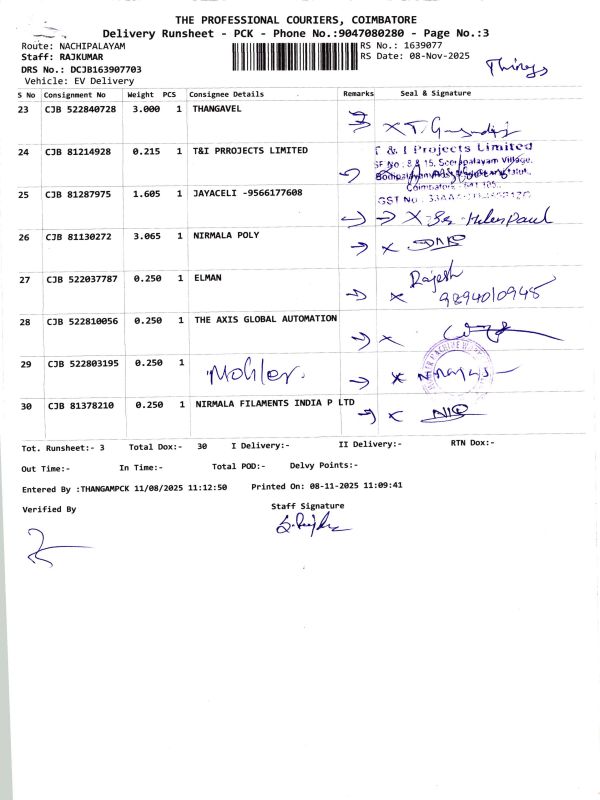 THE PROFESSIONAL COURIERS, COIMBATORE
Delivery Runsheet - PCK - Phone No.:9047080280 - Page No.:3
Route: NACHIPALAYAM RS No.: 1639077
Staff: RAJKUMAR RS Date: 08-Nov-2025
DRS No.: DCJB163907703
Vehicle: EV Delivery
Things
S No Consignment No Weight PCS Consignee Details Remarks Seal & Signature
23 CJB 522840728 3.000 1 THANGAVEL
24 CJB 81214928 0.215 1 T&I PRROJECTS LIMITED
T & I Projects Limited
SF No : 8 & 15, Seerapalayam Village,
Coimbatore - 641 105.
GST No :
25 CJB 81287975 1.605 1 JAYACELI -9566177608
Helen Paul
26 CJB 81130272 3.065 1 NIRMALA POLY
27 CJB 522037787 0.250 1 ELMAN
Rajesh
9894010945
28 CJB 522810056 0.250 1 THE AXIS GLOBAL AUTOMATION
29 CJB 522803195 0.250 1
Mohler.
30 CJB 81378210 0.250 1 NIRMALA FILAMENTS INDIA P LTD
Tot. Runsheet:- 3 Total Dox:- 30 I Delivery:- II Delivery:- RTN Dox:-
Out Time:- In Time:- Total POD:- Delvy Points:-
Entered By :THANGAMPCK 11/08/2025 11:12:50 Printed On: 08-11-2025 11:09:41
Verified By Staff Signature